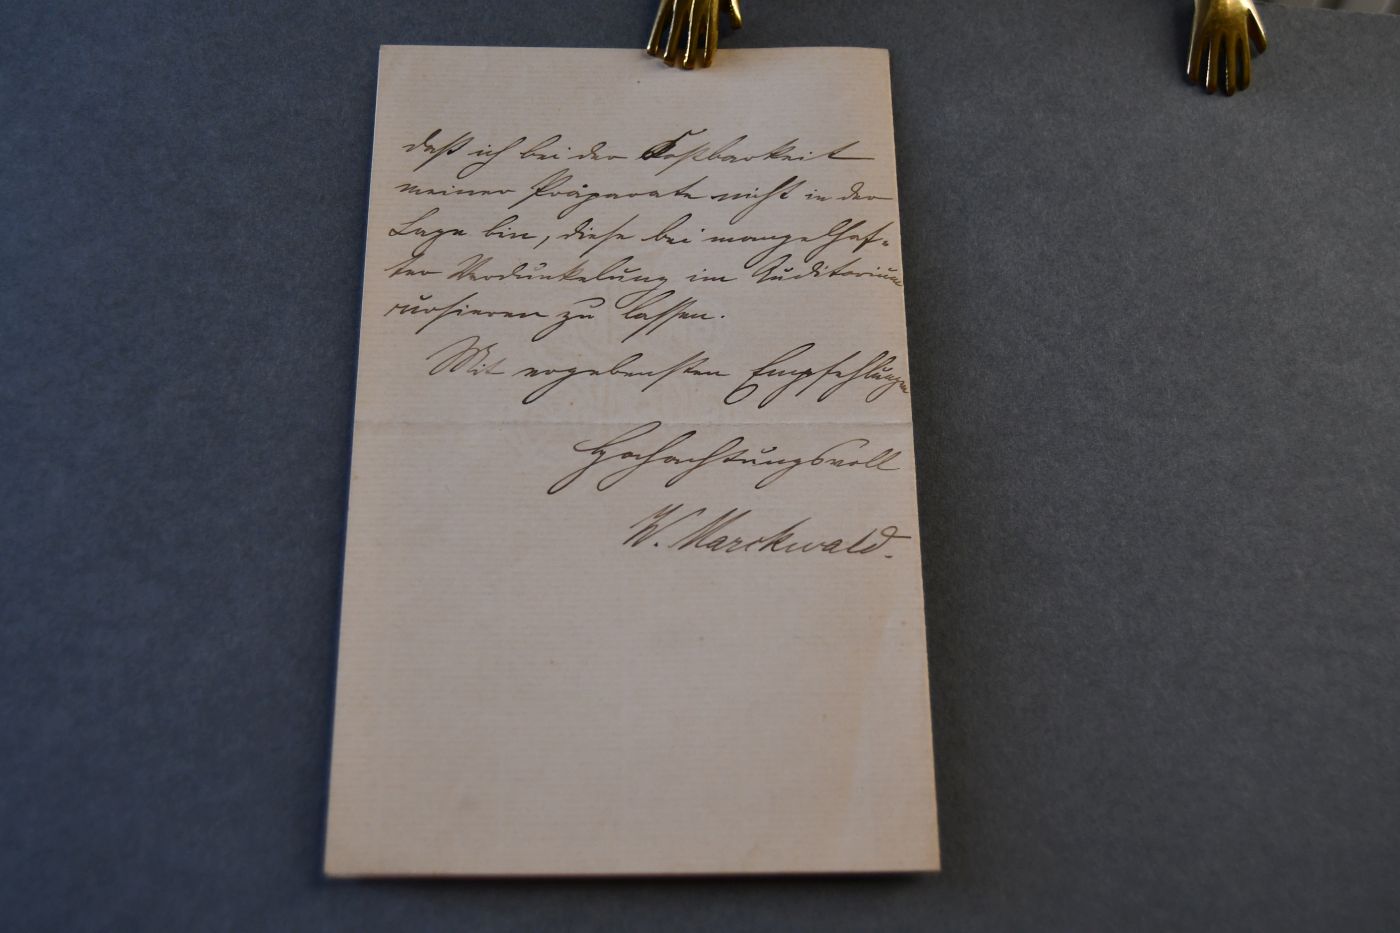 daß ich bei der Kostbarkeit
meiner Präparate nicht in der
Lage bin, diese bei mangelhaf-
ter Verdunkelung im Auditorium
cursieren zu lassen.
Mit ergebensten Empfehlungen
Hochachtungsvoll
W. Marckwald.